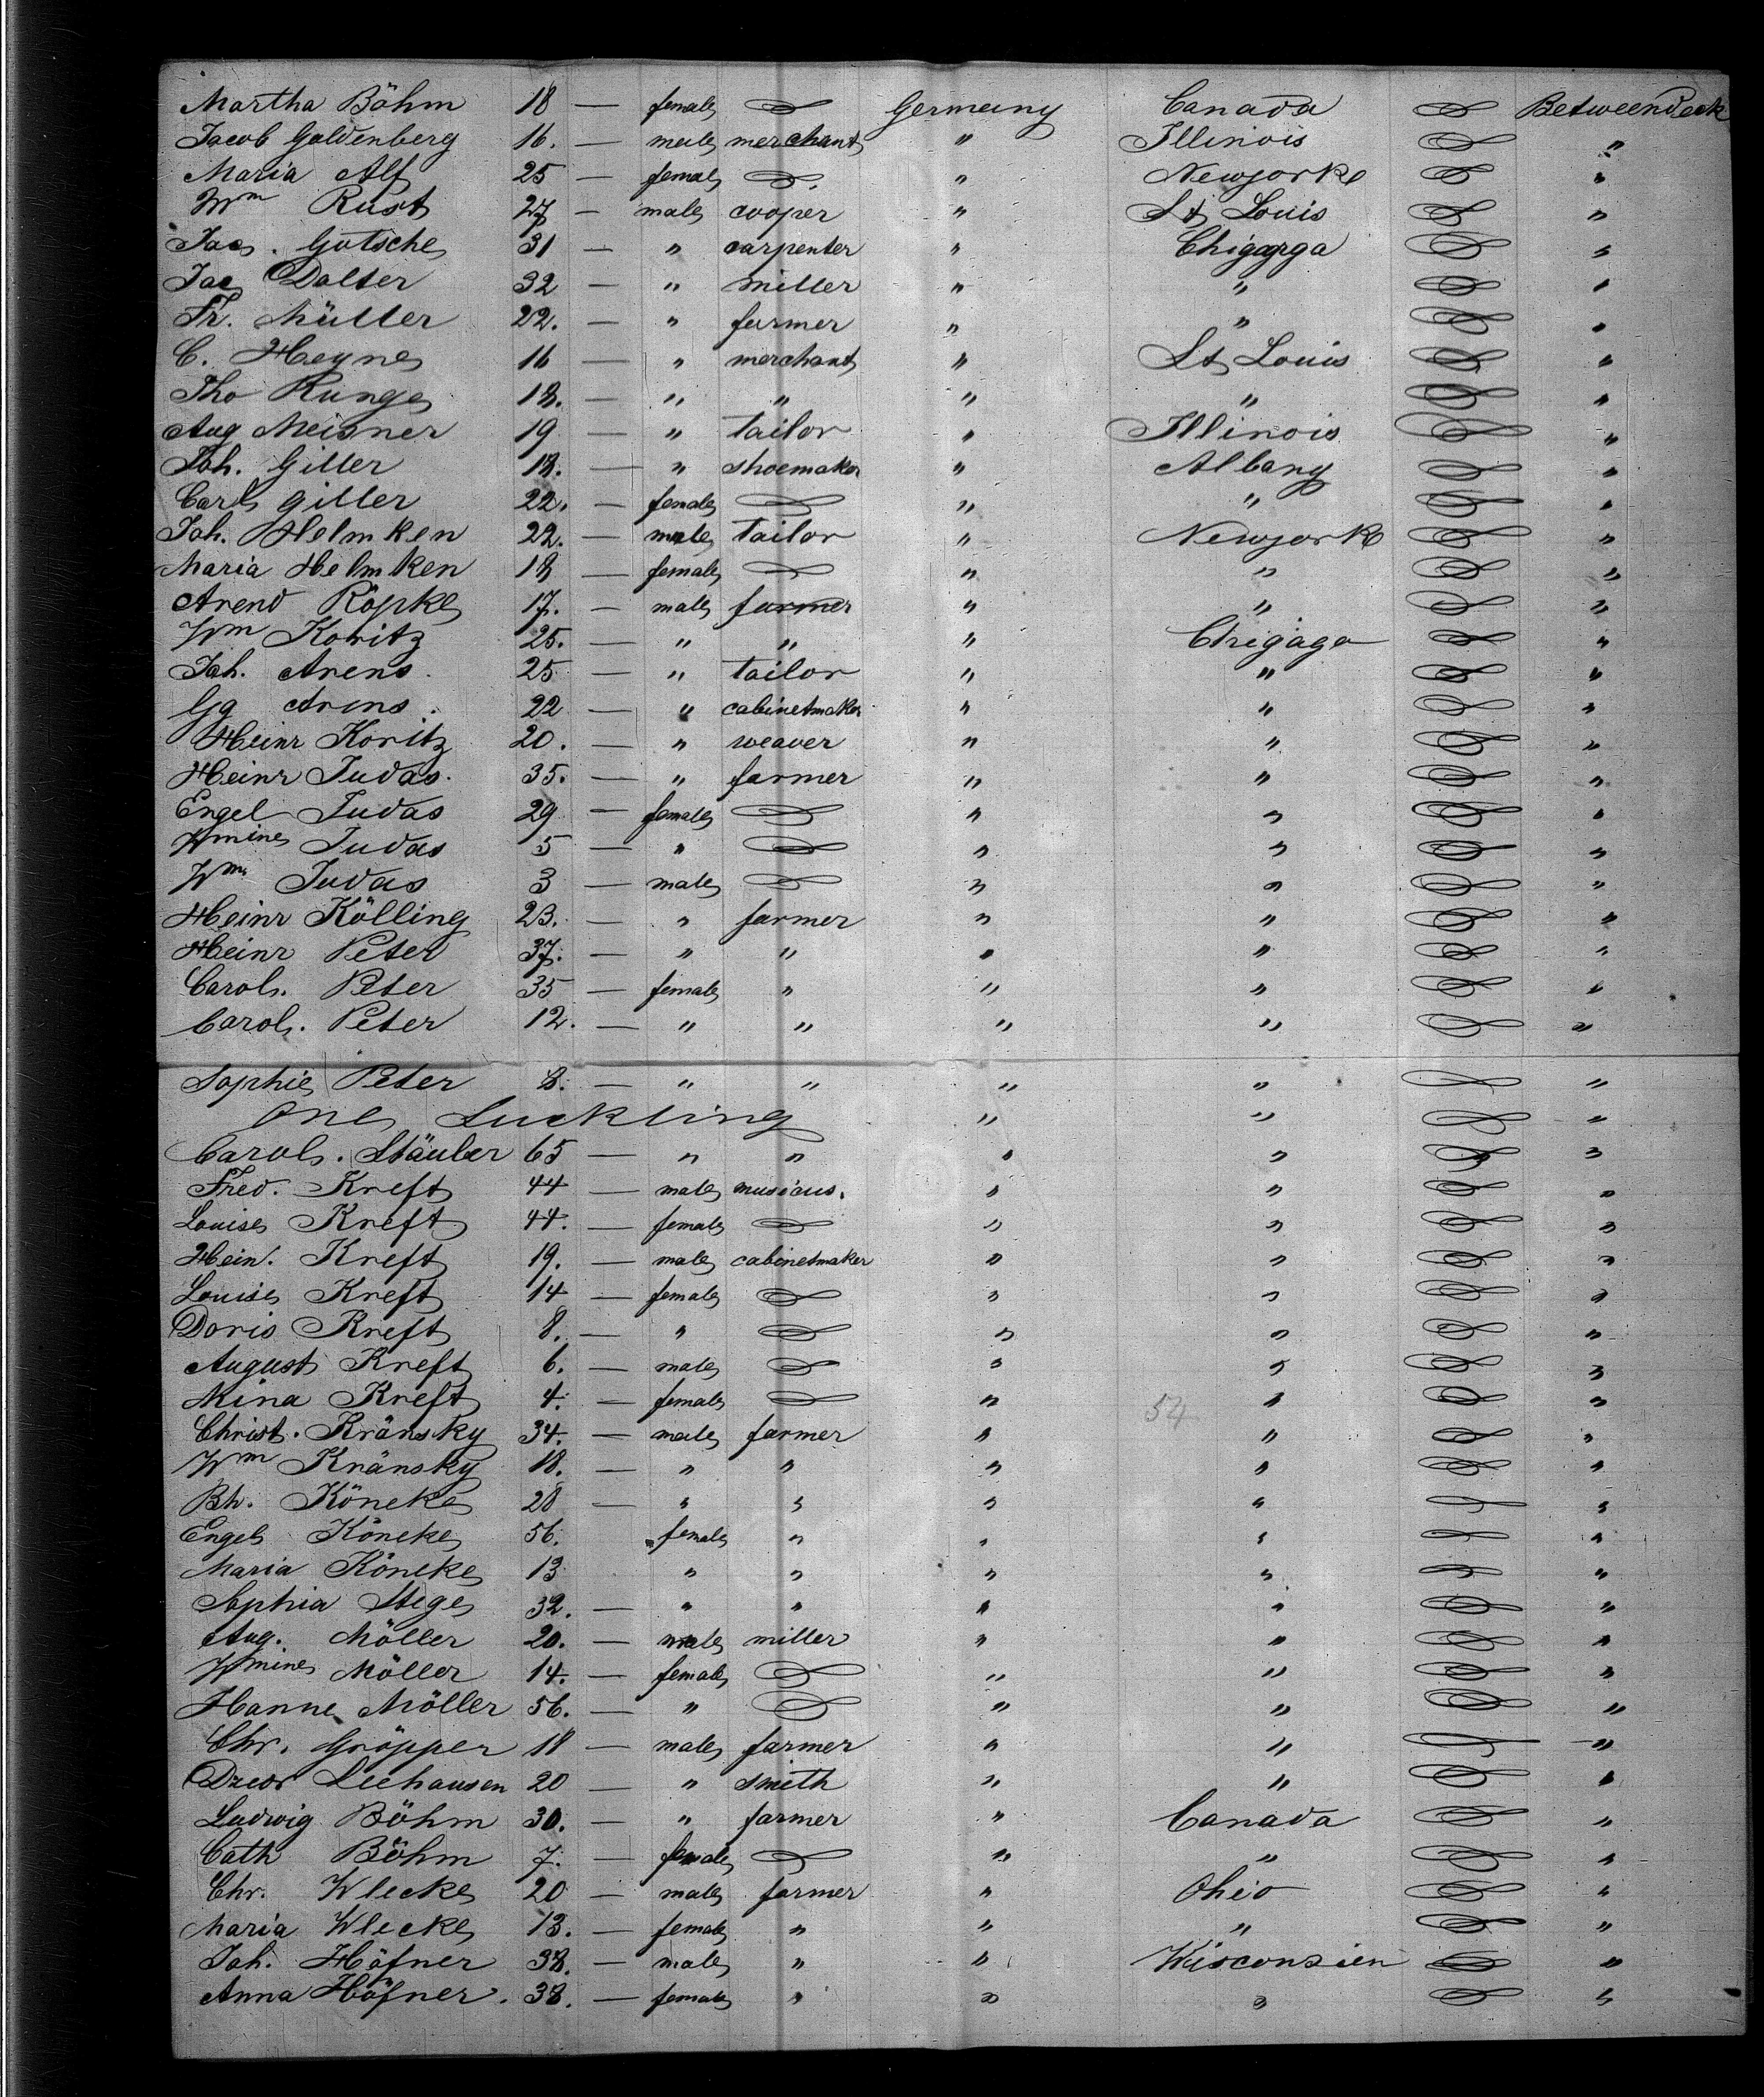 Martha Böhm 18 — female Germany Canada Betweendeck
Jacob Goldenberg 16. — male merchant " Illinois "
Maria Alf 25 — female " Newyork "
Wm Rust 27 — male cooper " St Louis "
Jac. Gotsche 31 — " carpenter " "
Jac Dalter 32 — " miller " " "
Fr. Müller 22. — " farmer " " "
C. Heyne 16 — " merchant " St Louis "
Tho Runge 18. — " " " " "
Aug Meisner 19 — " tailor " Illinois "
Joh. Giller 18. — " shoemaker " Albany "
Carl Giller 22. — female " " "
Joh. Helmken 22. — male tailor " Newyork "
Maria Helmken 18 — female " " "
Arend Röpke 17. — male farmer " " "
Wm Koritz 25. — " " " Chigago "
Joh. Arens. 25 — " tailor " " "
Gg Arens. 22 — " cabinetmaker " " "
Heinr Koritz 20. — " weaver " " "
Heinr Judas. 35. — " farmer " " "
Engel Judas 29 — female " " "
Wmine Judas 5 — " " " "
Wm Judas 3 — male " " "
Heinr Kölling 23. — " farmer " " "
Heinr Peter 37. — " " " " "
Carol. Peter 35 — female " " " "
Carol. Peter 12. — " " " " "
Sophie Peter 8. — " " " " "
One Suckling " " "
Carol. Stäuber 65 — " " " " "
Fred. Kreft 44 — male musicus. " " "
Louise Kreft 44. — female " " "
Hein. Kreft 19. — male cabinetmaker " " "
Louise Kreft 14 — female " " "
Doris Kreft 8. — " " " "
August Kreft 6. — male " " "
Mina Kreft 4. — female " 54 " "
Christ. Kränsky 34. — male farmer " " "
Wm Kränsky 18. — " " " " "
Bh. Köneke 28 — " " " " "
Engel Köneke 56. female " " " "
Maria Köneke 13 " " " " "
Sophia Stege 32. — " " " " "
Aug. Möller 20. — male miller " " "
Wmine Möller 14. — female " " "
Hanne Möller 56. — " " " "
Chr. Gröpper 18 — male farmer " " "
Leehausen 20 — " smith " " "
Ludwig Böhm 30. — " farmer " Canada "
Cath Böhm 7. — female " " "
Chr. Wlecke 20 — male farmer " Ohio "
Maria Wlecke 18. — female " " " "
Joh. Höfner 38. — male " " Wisconsien "
Anna Höfner. 38. — female " " " "